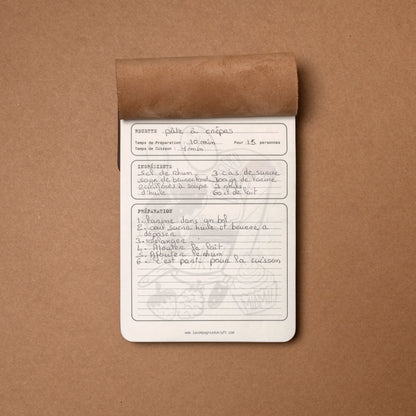 RECETTE pâte à crêpes
Temps de Préparation : 10 min Pour 15 personnes
Temps de Cuisson : 4 min
INGRÉDIENTS
Sel de rhum 3 càs de sucre
50g de beurre fondu de farine
2 cuillères à soupe 3 œufs
d'huile 60 cl de lait
PRÉPARATION
1. farine dans un bol
2. œuf sucre huile et beurre à
déposer
3. mélanger
4. Ajouter le lait
5. Ajouter le rhum
6. c'est parti pour la cuisson